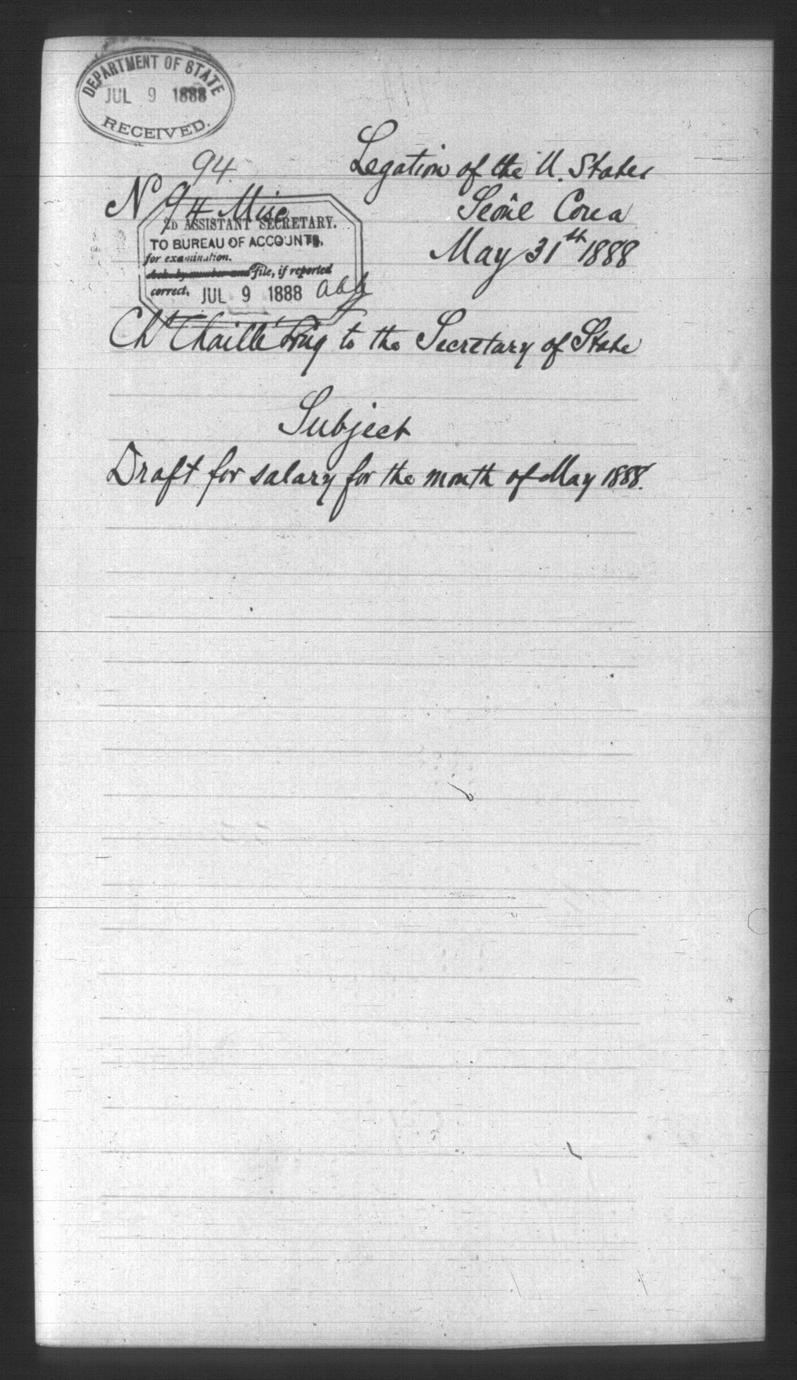 DEPARTMENT OF STATE
JUL 9 1888
RECEIVED.
94.
Legation of the U. States
Nº 94 Misc
Seoûl Corea
May 31th 1888
2D ASSISTANT SECRETARY.
TO BUREAU OF ACCOUNTS,
for examination.
Ack. by number and file, if reported
correct. JUL 9 1888
Ch Chaillé Long to the Secretary of State
Subject
Draft for salary for the month of May 1888.